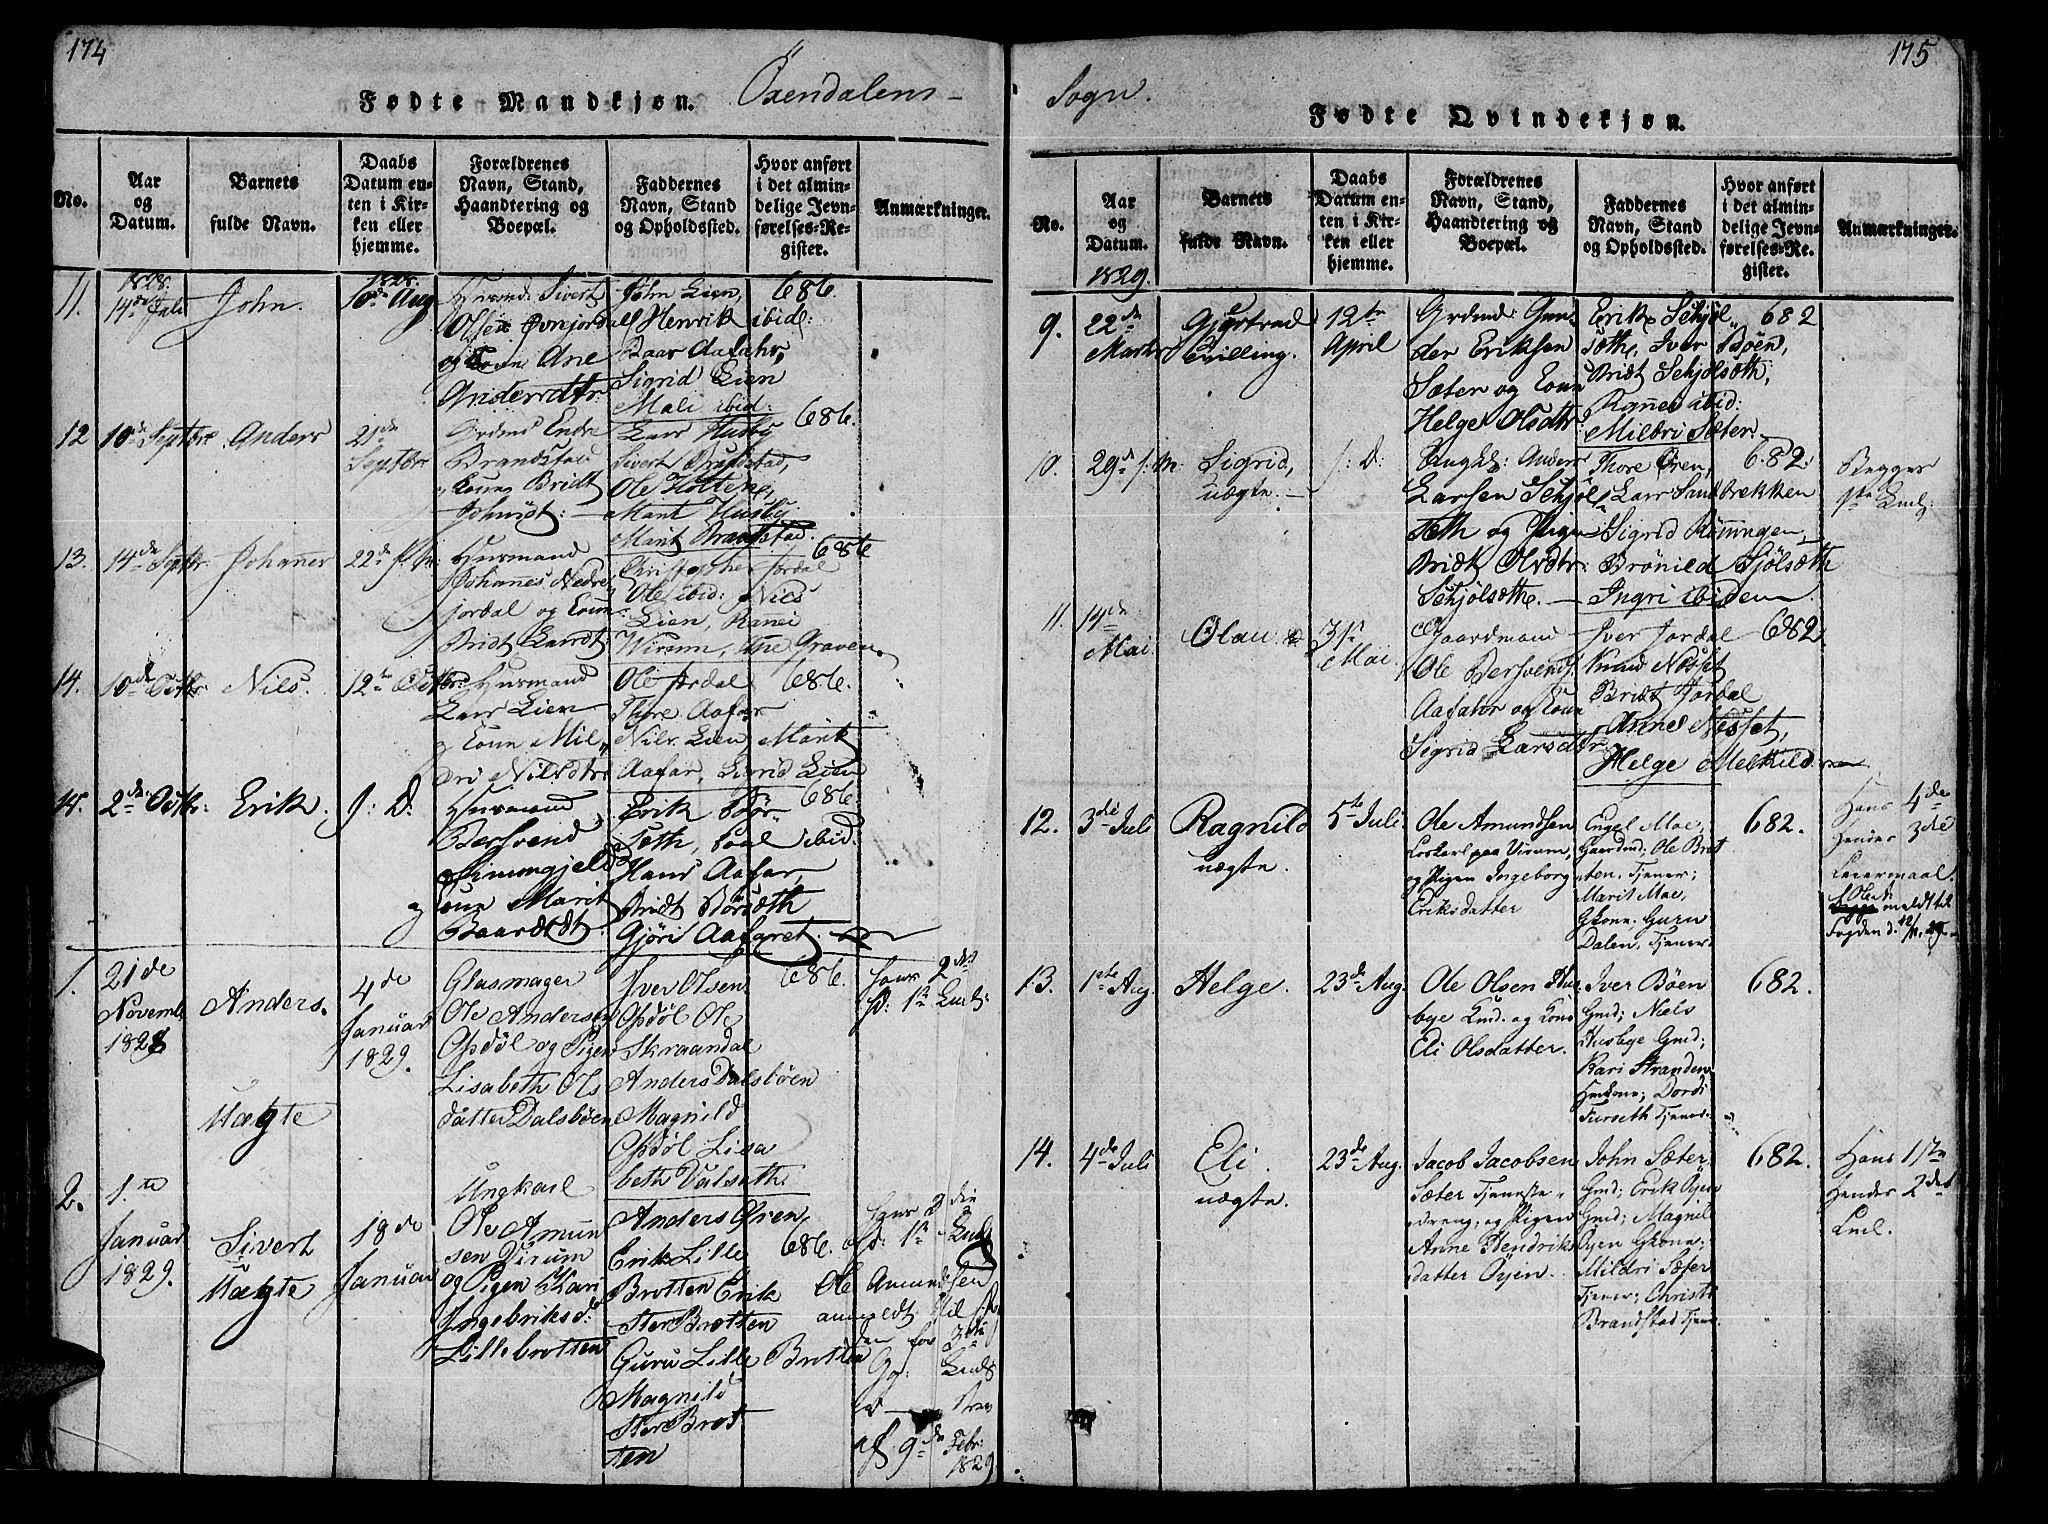 174
Fødte Mandkjøn. Öxendalens-
No.
Aar
og
Datum.
Barnets
fulde Navn.
Daabs
Datum en-
ten i Kir-
ken eller
hjemme.
Forældrenes
Navn, Stand,
Haandtering og
Boepæl.
Faddernes
Navn, Stand
og Opholdssted.
Hvor anført
i det almin-
delige Jevn-
førelses-Re-
gister.
Anmærkninger.
11.
1828.
14de Juli
John.
1828.
10de Aug
Husmd: Sivert
Olsen Øvnjordal
og Kone Ane
Andersdtr.
John Lien,
Henrik ibid:
Baar Aafahr,
Sigrid Lien
Mali ibid:
686.
12
10de Septbr.
Anders
21de
Septbr
Grdmd Endre
Brandstad
Kone Bridt
Johnsdt:
Lars Husby
Sivert Brandstad,
Ole Holten,
Marit Husby
Marit Brandstad.
686.
13.
14de Septbr.
Johannes
22de
Husmand
Johanes Nedre
jordal og Kone
Bridt Larsdt
Christopher Jordal
Ole ibid: Niels
Lien, Ranei
Wirum, Ane Graven.
686
14.
10de Octbr:
Nils.
12te Octbr:
Husmand
Lars Lien
og Kone Mil„
dri Nilsdtr
Ole Jordal
Thore Aafar
Nils Lien Marit
Aafar, Sigrid Lien
686.
15.
2de Octbr:
Erik.
J: D.
Husmand
Bersvend
Simmgjeld
og Kone Marit
Baardsdt.
Erik Bør-
seth, Poul ibid:
Hans Aafar,
Bridt Børsæth
Gjøri Aafaret.
686.
1.
21de
Novemb
1828
Anders.
Uægte
4de
Januar
1829.
Glasmager
Ole Andersen
Opdøl og Pigen
Lisabeth Ols
datter Dalsbøen
Iver Olsen
Opdøl Ole
Skraandal
Anders Dalsbøen
Magnild
Opdøl Lisa
beth Valsæth
686.
hans 2det
h: 1te Leiermaal:
2.
1.te
Januar
1829.
Sivert
Uægte
18de
Januar
Ungkarl
Ole Amun
sen Virum
og Pigen Kari
Ingebriksd:
Lillebrotten
Anders Øren
Erik Lille
Brotten Erik
Stor Brotten
Guru Lille Brotten
Magnild
Stor Brot
ten
686.
hans 3die
h: 1te Leierm
Ole Amundsen
anmeldt til
den for 3die
af 9de Febr:
1829.
175
Sogn.
Fødte Qvindekjøn.
No.
Aar
og
Datum.
1829.
Barnets
fulde Navn.
Daabs
Datum en-
ten i Kir-
ken eller
hjemme.
Forældrenes
Navn, Stand,
Haandtering og
Boepæl.
Faddernes
Navn, Stand
og Opholdssted.
Hvor anført
i det almin-
delige Jevn-
førelses-Re-
gister.
Anmærkninger.
9.
22de
Marts
Gjertrud
Tvilling.
12te
April
Grdmd: Gun-
der Eriksen
Sæter og Kone
Helge Olsdtr
Erik Sehjøl„
sæth, Iver Bøen,
Bridt Sehjølsæth,
Ragnei ibid:
Mildri Sæter.
682
10.
29de s: M:
Sigrid,
uægte.
J: D:
Ungkl: Anders
Larsen Sehjøl
seth og Pigen
Bridt Olsdtr:
Sehjølsæth.
Thore Øren,
Lars Sandbrekken
Sigrid Rönningen,
Brönild Sjølsæth
Ingri ibidem
682.
Begges
1ste Leml:
11.
14de
Mai
Olau
31st
Mai
Gaardmand
Ole Bersvends.
Aafahr og Kone
Sigrid Larsdtr
Iver Jordal
Knud Nesset
Bridt Jordal
Anne Nesset,
Helge Melkild
682.
12.
3die Juli
Ragnild
uægte.
5te Juli.
Ole Amundsen
Løskarl paa Virum,
og Pigen Ingeborg
Eriksdatter
Engel Moe,
Gaardmd: Ole Brot
ten. Tjener;
Marit Moe,
Gkone. Guru
Dalen, Tjener.
682.
Hans 4de
Hendes 3die
Leiermaal.
Ole A.
meldt til
Fogden d. 12/11. 29.
13.
1ste Aug.
Helge.
23de Aug.
Ole Olsen Hus
bye Gmd. og Kone
Eli Olsdatter.
Iver Böen
Gmd; Niels
Husbye Gmd;
Kari Stranden
Hmkone; Dordi
Furseth Tjener.
682.
14.
4de Juli
Eli.
uægte.
23de Aug.
Jacob Jacobsen
Sæter Tjeneste-
dreng, og Pigen
Anne Hendriks
datter Öyen.
John Sæter
Gmd; Erik Öyen
Gmd; Magnil
Öyen Gkone;
Mildri Sæter
Tjener; Christi
Brandstad Tjener.
682.
Hans 1ste
Hendes 2det
Leml.